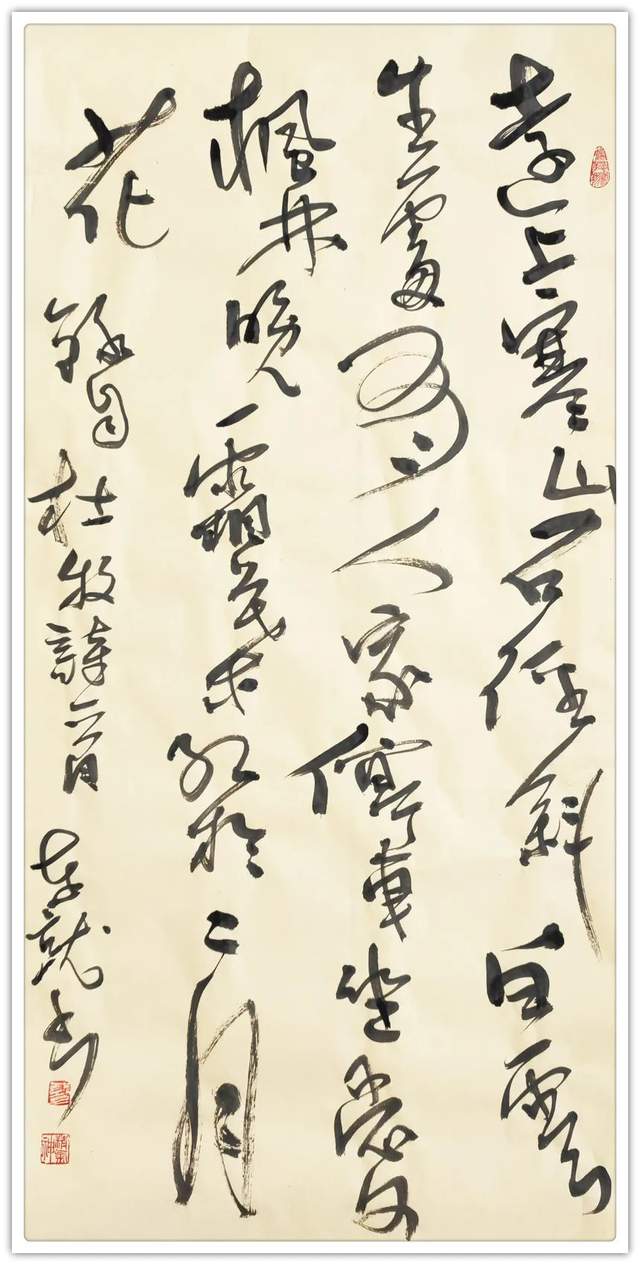 遠上寒山石徑斜白雲
生處有人家停車坐愛
楓林晚霜葉紅於二月
花 錄自杜牧詩一首 書